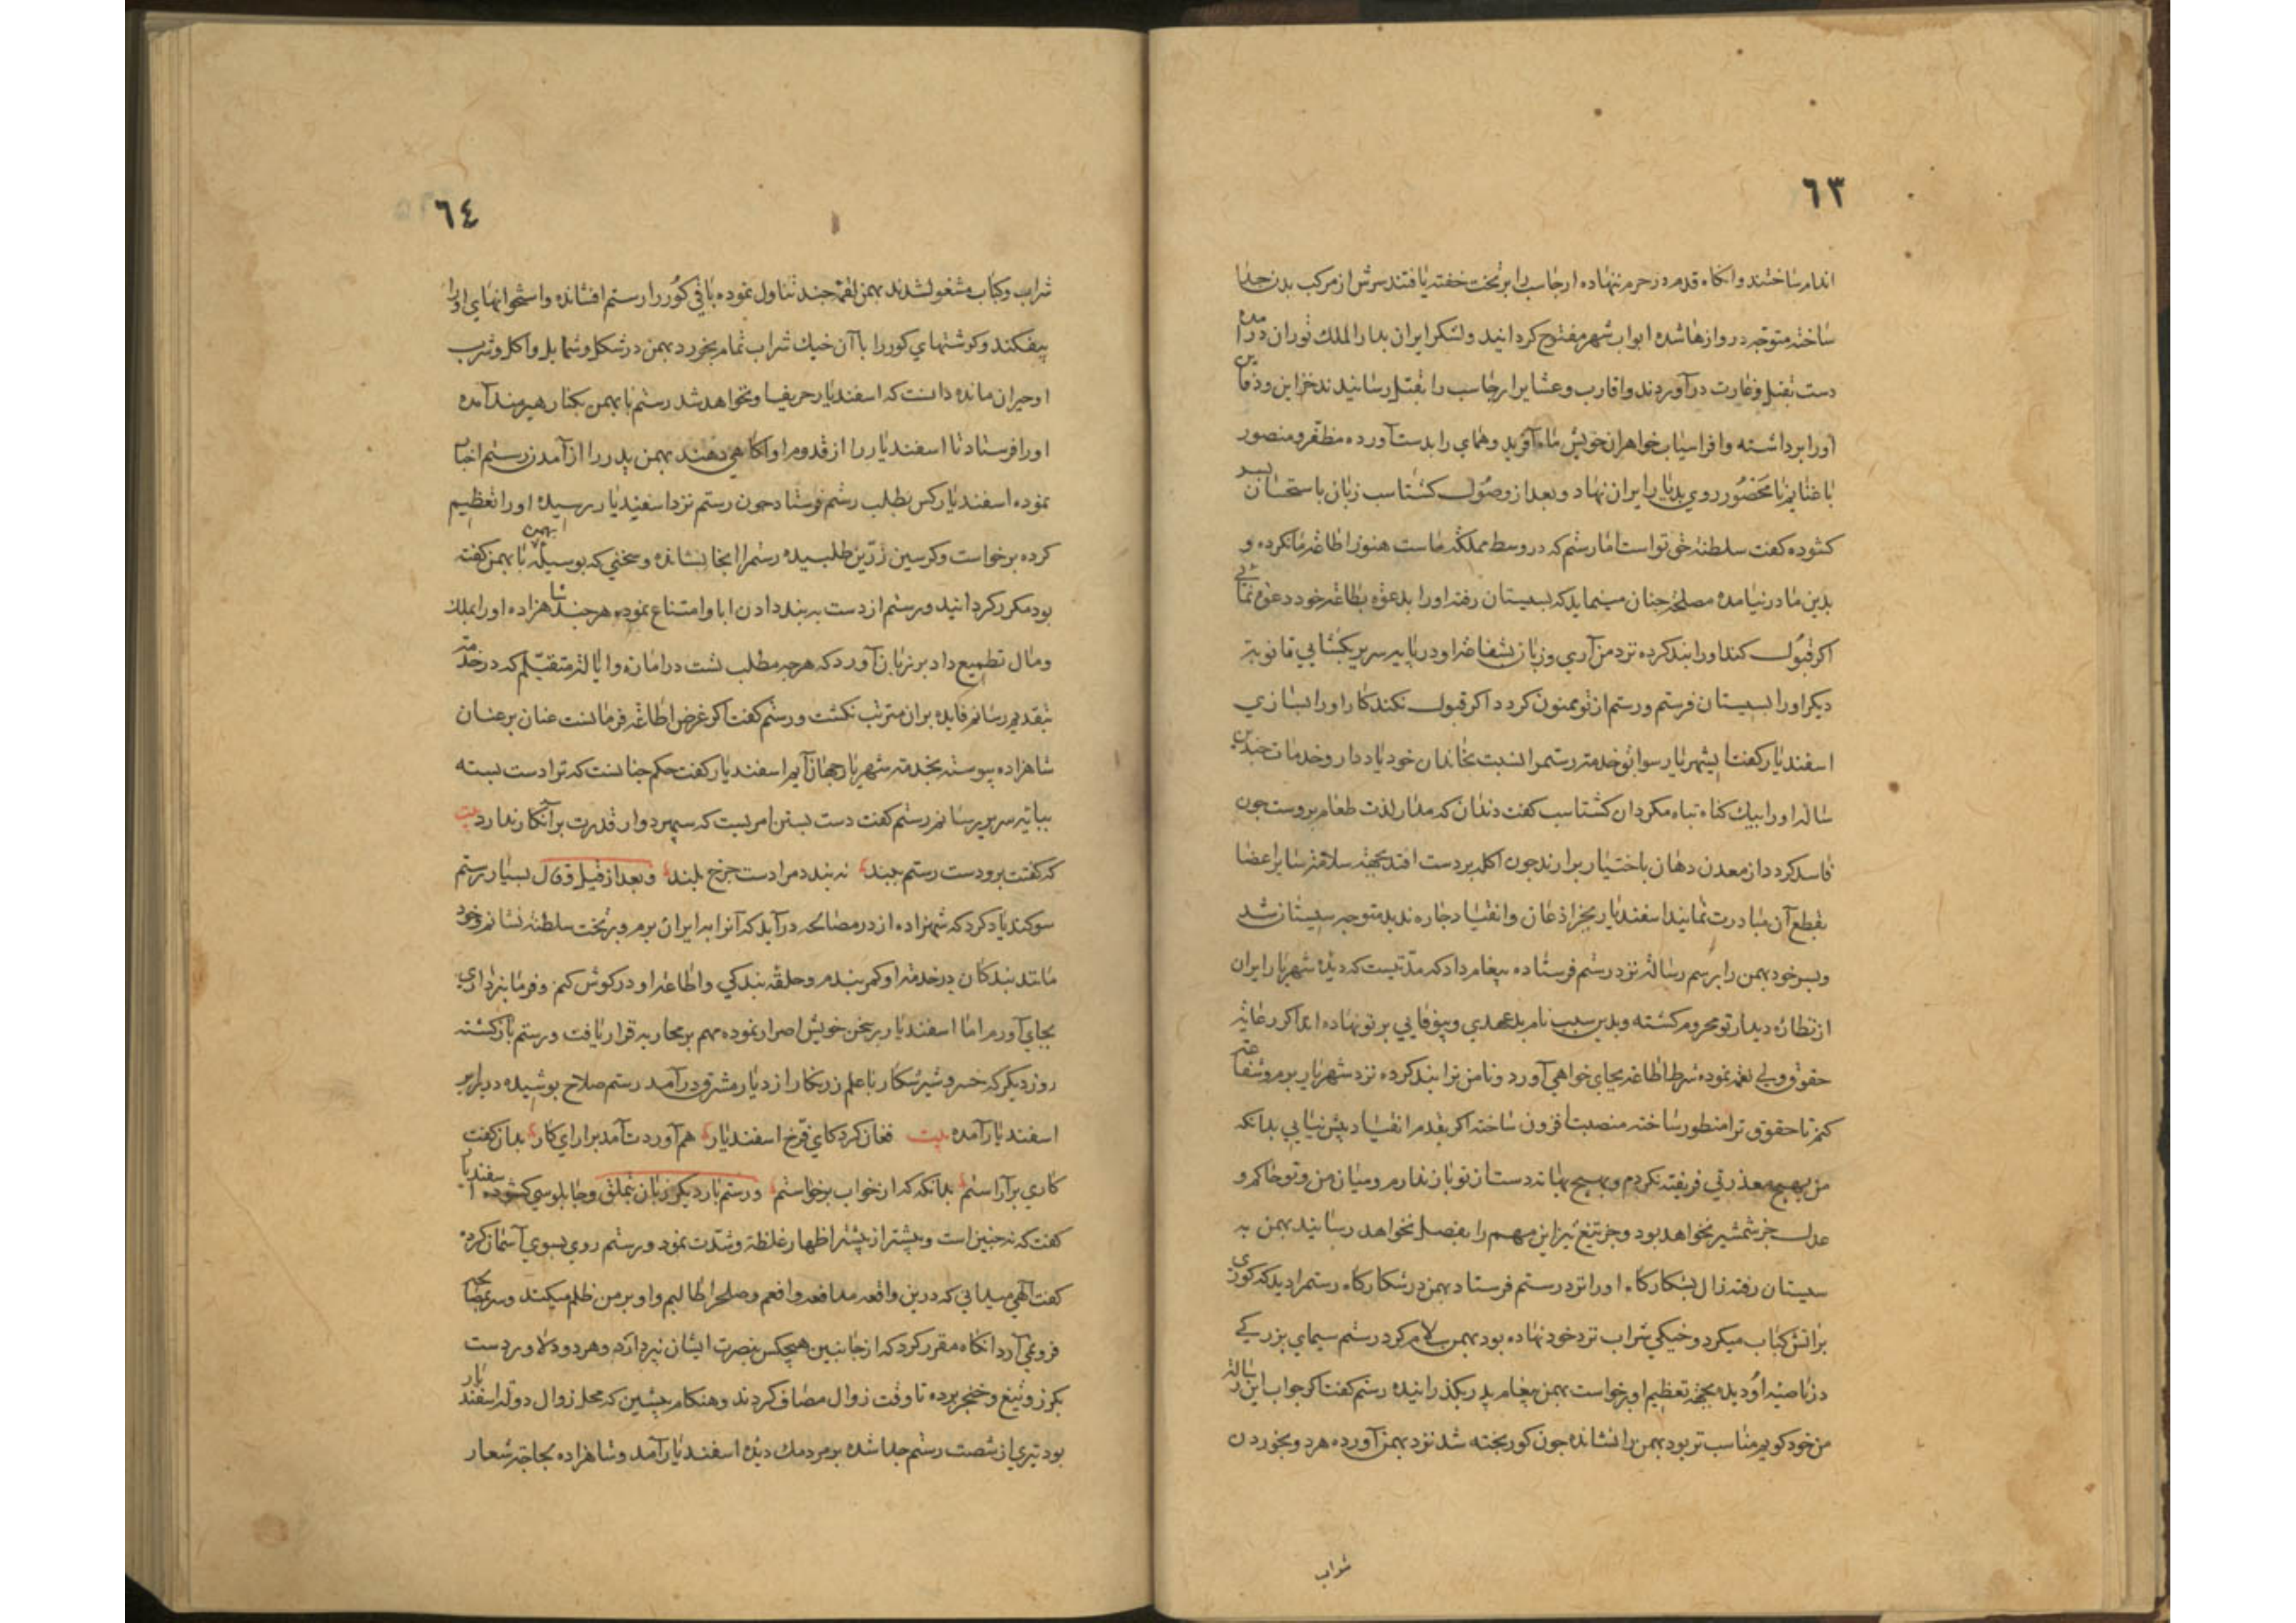 ٦٣
اندام ساختند وانكاه قدم در حرم ننهاده ارجاسب را بر تخت خفته يافتند سرش از مركب بدن جدا
ساخته متوجه دروازها شده ابواب شهر مفتوح كردانيد ولشكر ايران بدار الملك توران درامده
دست بقتل وغارت درآوردند واقارب وعشاير ارجاسب را بقتل رسانيدند خزاين ودفاين
اورا برداشته وافراسياب خواهران خويش ماه آفريد وهماي را بدست آورده مظفر ومنصور
با غنايم نامحصور روي بديار ايران نهاد وبعد از وصول كشتاسب زبان باستحسان پسر
كشوده كفت سلطنة حق تواست اما رستم كه در وسط مملكة ماست هنوز اطاعة ما نكرده و
بدين ما درنيامده مصلحة چنان مينمايد كه بسيستان رفته اورا بدعوة بطاعة خود دعوة نمائي
اكر قبول كند اورا بند كرده نزد من آري وزبان بشفاعة او در پايه سرير بكشايي تا نوبة
ديكر اورا بسيستان فرستم ورستم از تو ممنون كردد اكر قبول نكند كار اورا بسازي
اسفنديار كفت ايشهريار سوابق خدمة رستم را نسبت بخاندان خود ياد دار وخدمات چندين
ساله اورا بيك كناه تباه مكردان كشتاسب كفت دندان كه مدار لذت طعام بروست چون
فاسد كردد از معدن دهان باختيار برارند چون اكله بر دست افتد بجهة سلامة ساير اعضا
بقطع آن مبادرت نمايند اسفنديار بجز اذعان وانقياد چاره نديد متوجه سيستان شد
وپسر خود بهمن را برسم رسالة نزد رستم فرستاده پيغام داد كه مدتيست كه ديده شهريار ايران
از نظاره ديدار تو محروم كشته وبدين سبب نام بدعهدي وبيوفايي بر تو نهاده اند اكر رعاية
حقوق ولي نعمة نموده شرط اطاعة بجاي خواهي آورد ونامن ترا بند كرده نزد شهريار برم وشفاعة
كنم تا حقوق ترا منظور ساخته منصبت افزون ساخته اكر بقدم انقياد پيش نيايي بدانكه
من بهيچ معذرتي فريفته نكردم وبهيچ بهانه دست از تو باز ندارم وميان من وتو حاكم و
عدل جز شمشير نخواهد بود وجز تيغ تيز اين مهم را بفصل نخواهد رسانيد بهمن به
سيستان رفته زال بشكاركاه اورا نزد رستم فرستاد بهمن در شكاركاه رستم را ديد كه كوري
براتش كباب ميكرد وخيكي شراب نزد خود نهاده بود بهمن سلام كرد رستم سيماي بزركي
در ناصيه او ديده بجهة تعظيم او برخواست بهمن پيغام پدر بكذرانيده رستم كفت اكر جواب اين رسالة
من خود كويم مناسب تر بود بهمن را نشانده چون كور پخته شد نزد بهمن آورده هر دو بخوردن
شراب
٦٤
شراب وكباب مشغول شدند بهمن لقمة چند تناول نموده باقي كور را رستم افشانده واستخوانهاي اورا
بيفكند وكوشتهاي كور را با آن خيك شراب تمام بخورد بهمن در شكل وشمايل واكل وشرب
او حيران مانده دانست كه اسفنديار حريف او نخواهد شد رستم با بهمن بكنار هيرمند آمده
اورا فرستاد تا اسفنديار را از قدوم او اكاهي دهند بهمن پدر را از آمدن رستم اخبار
نموده اسفنديار كس بطلب رستم فرستاد چون رستم نزد اسفنديار رسيده اورا تعظيم
كرده برخواست وكرسين زرين طلبيده رستم را انجا نشانده وسخني كه بوسيلة بهمن با بهمن كفته
بود مكرر كردانيد ورستم از دست به بند دادن ابا وامتناع نموده هر چند شاهزاده اورا بملك
ومال تطميع داد بر زبان آورد كه هر چه مطلب تست در امان وايالة متقبلم كه در خدمة
بتقديم رسانم فايده بران مترتب نكشت ورستم كفت اكر غرض اطاعة فرمانست عنان بر عنان
شاهزاده پيوسته بخدمة شهريار جهان آيم اسفنديار كفت حكم چنانست كه ترا دست بسته
بپايه سرير رسانم رستم كفت دست بستن امريست كه سپهر دوار قدرت بر آنكار ندارد بيت
كه كفتت برو دست رستم ببند نه بندد مرا دست چرخ بلند وبعد از قيل وقال بسيار رستم
سوكند ياد كرد كه شهزاده از در مصالحه درآيد كه آنرا به ايران برم وبر تخت سلطنة نشانم وخود
مانند بندكان در خدمة او كمر بندم وحلقه بندكي واطاعة او در كوش كنم وفرمانبرداري
بجاي آورم اما اسفنديار بر سخن خويش اصرار نموده مهم بر محاربه قرار يافت ورستم بازكشته
روز ديكر كه خسرو شير شكار با علم زرنكار از ديار مشرق درآمد رستم صلاح پوشيده در برابر
اسفنديار آمده بيت فغان كرد كاي فرخ اسفنديار هم آوردت آمد براراي كار بدان كفت
كاري برآراستم بدانكه كه از خواب برخواستم ورستم بار ديكر زبان بتملق وچاپلوسي كشوده اسفنديار
كفت كه نه چنين است وبيشتر از پيشتر اظهار غلظة وشدت نمود ورستم روي بسوي آسمان كرده
كفت الهي ميداني كه درين واقعه مدافعه واقعم وصلح را طالبم واو بر من ظلم ميكند وسر بمصالحه
فرو نمي آرد انكاه مقرر كرد كه از جانبين هيچكس بنصرت ايشان نپردازد وهر دو دلاور دست
بكرز وتيغ وخنجر برده تا وقت زوال مصاف كردند وهنكام پيشين كه محل زوال دولة اسفنديار
بود تيري از شصت رستم جدا شده بر مردمك ديده اسفنديار آمد وشاهزاده بجاجة شعار